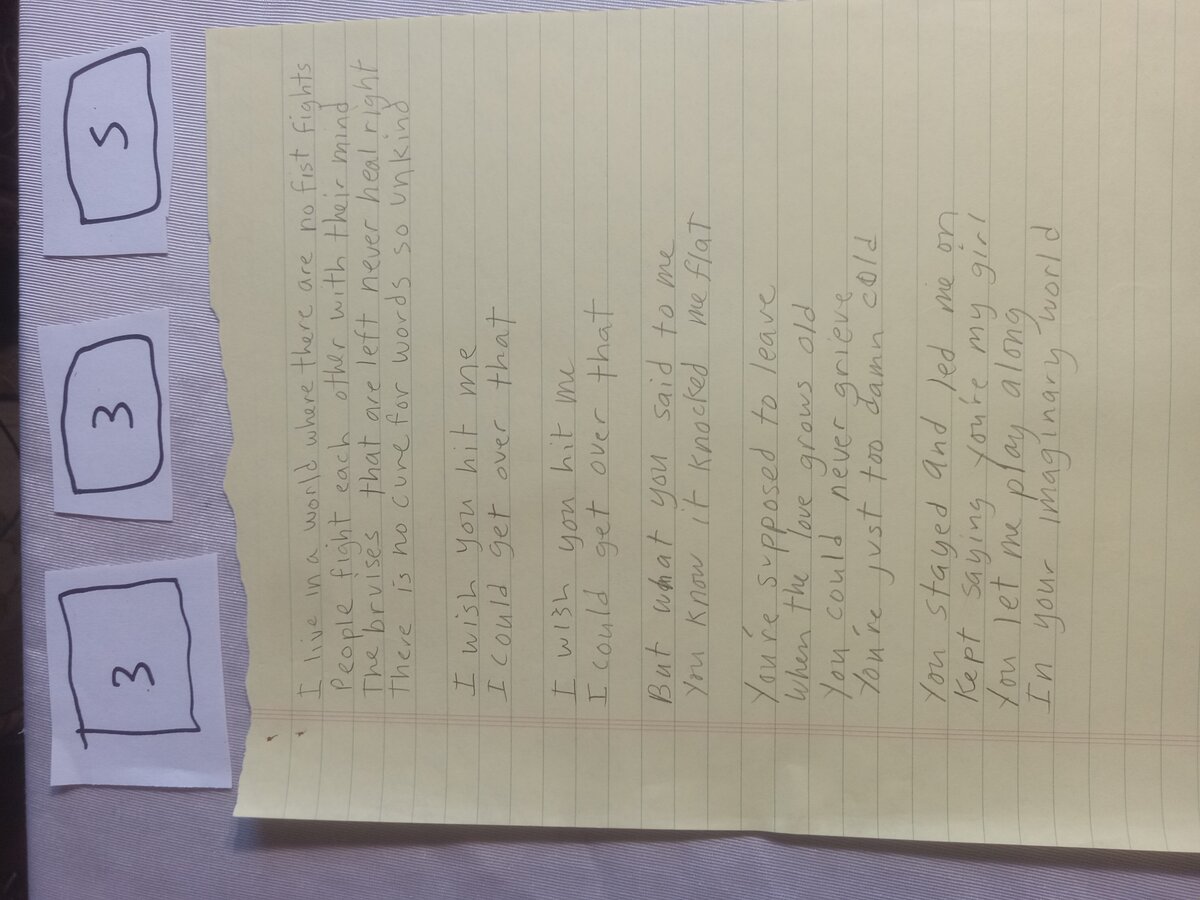 3
3
5
I live in a world where there are no fist fights
People fight each other with their mind
The bruises that are left never heal right
There is no cure for words so unkind
I wish you hit me
I could get over that
I wish you hit me
I could get over that
But what you said to me
You know it knocked me flat
You're supposed to leave
When the love grows old
You could never grieve
You're just too damn cold
You stayed and led me on
Kept saying you're my girl
You let me play along
In your imaginary world